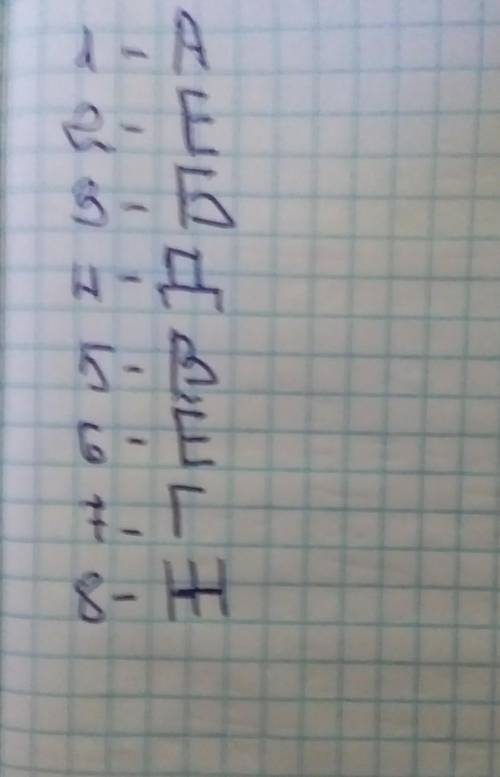 1 - А
2 - Е
3 - Б
4 - Д
5 - В
6 - Ё
7 - Г
8 - Ж